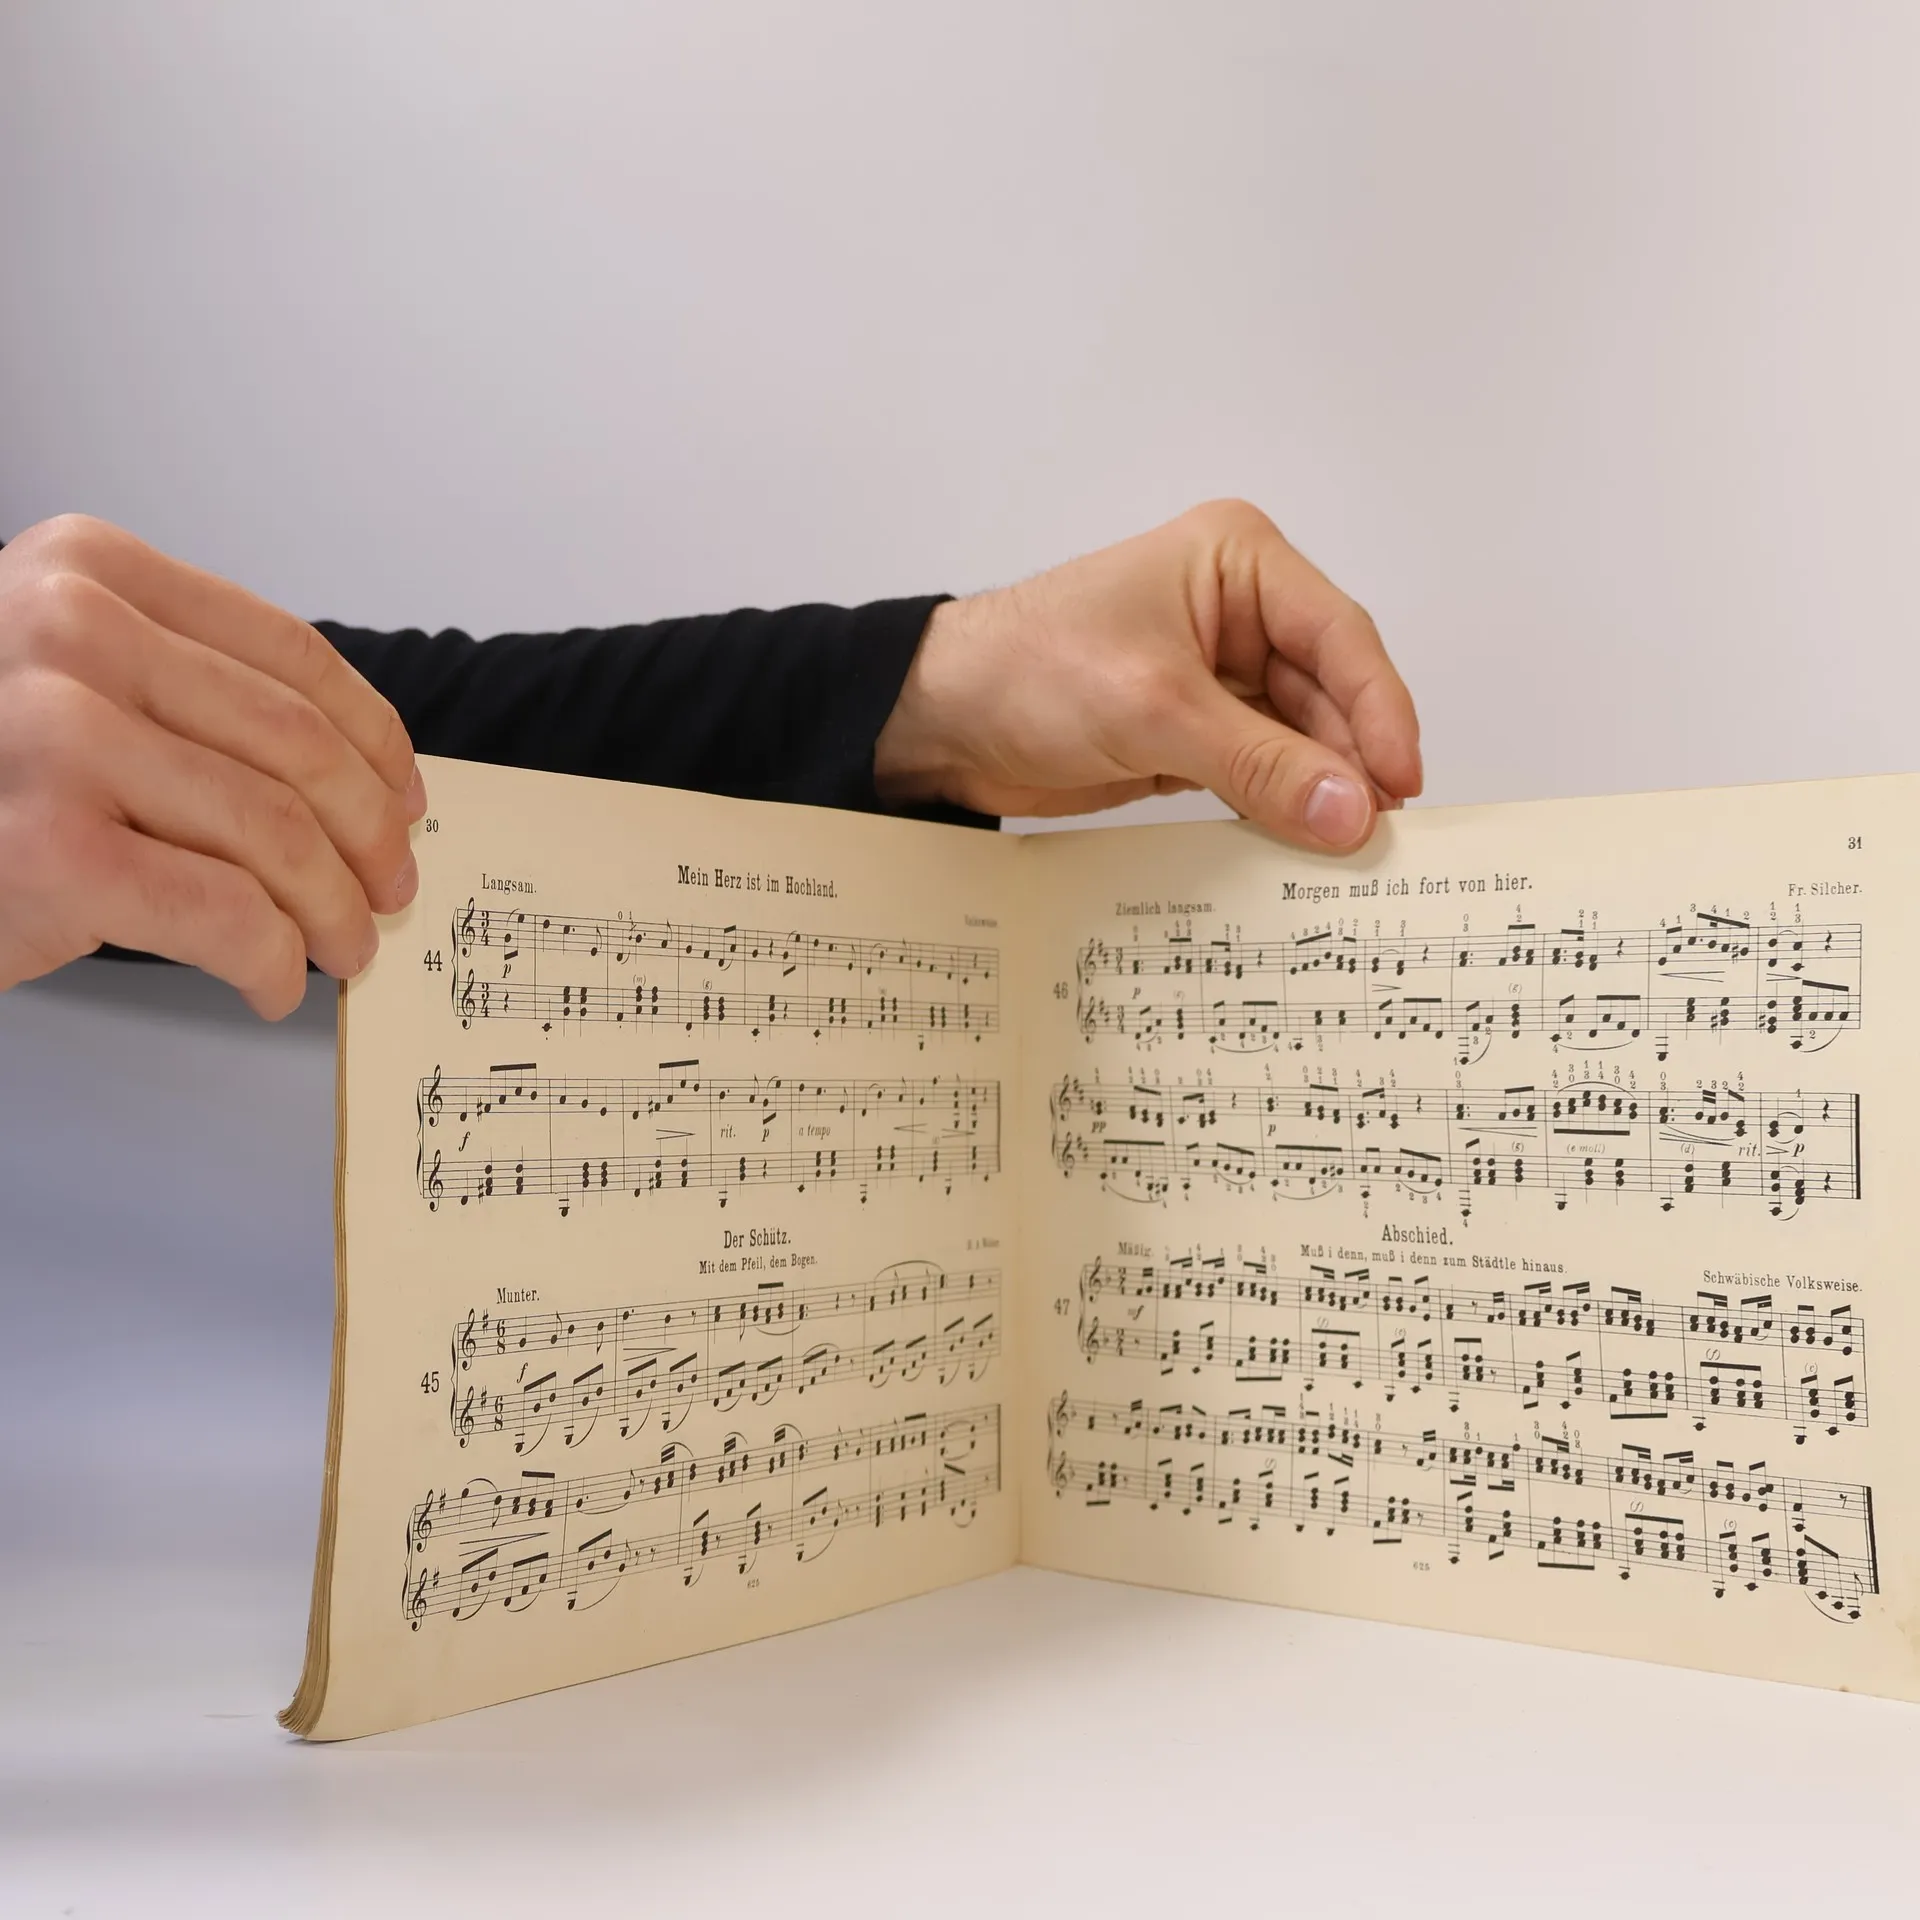 30
Mein Herz ist im Hochland.
Langsam.
Volksweise.
44
p
f
rit.
p
a tempo
Der Schütz.
Mit dem Pfeil, dem Bogen.
Munter.
45
f
625
31
Morgen muß ich fort von hier.
Ziemlich langsam.
Fr. Silcher.
46
p
(g)
(g)
pp
p
(g)
(e moll)
(d)
rit.
p
Abschied.
Muß i denn, muß i denn zum Städtle hinaus.
Mäßig.
Schwäbische Volksweise.
47
mf
(c)
(c)
(c)
625